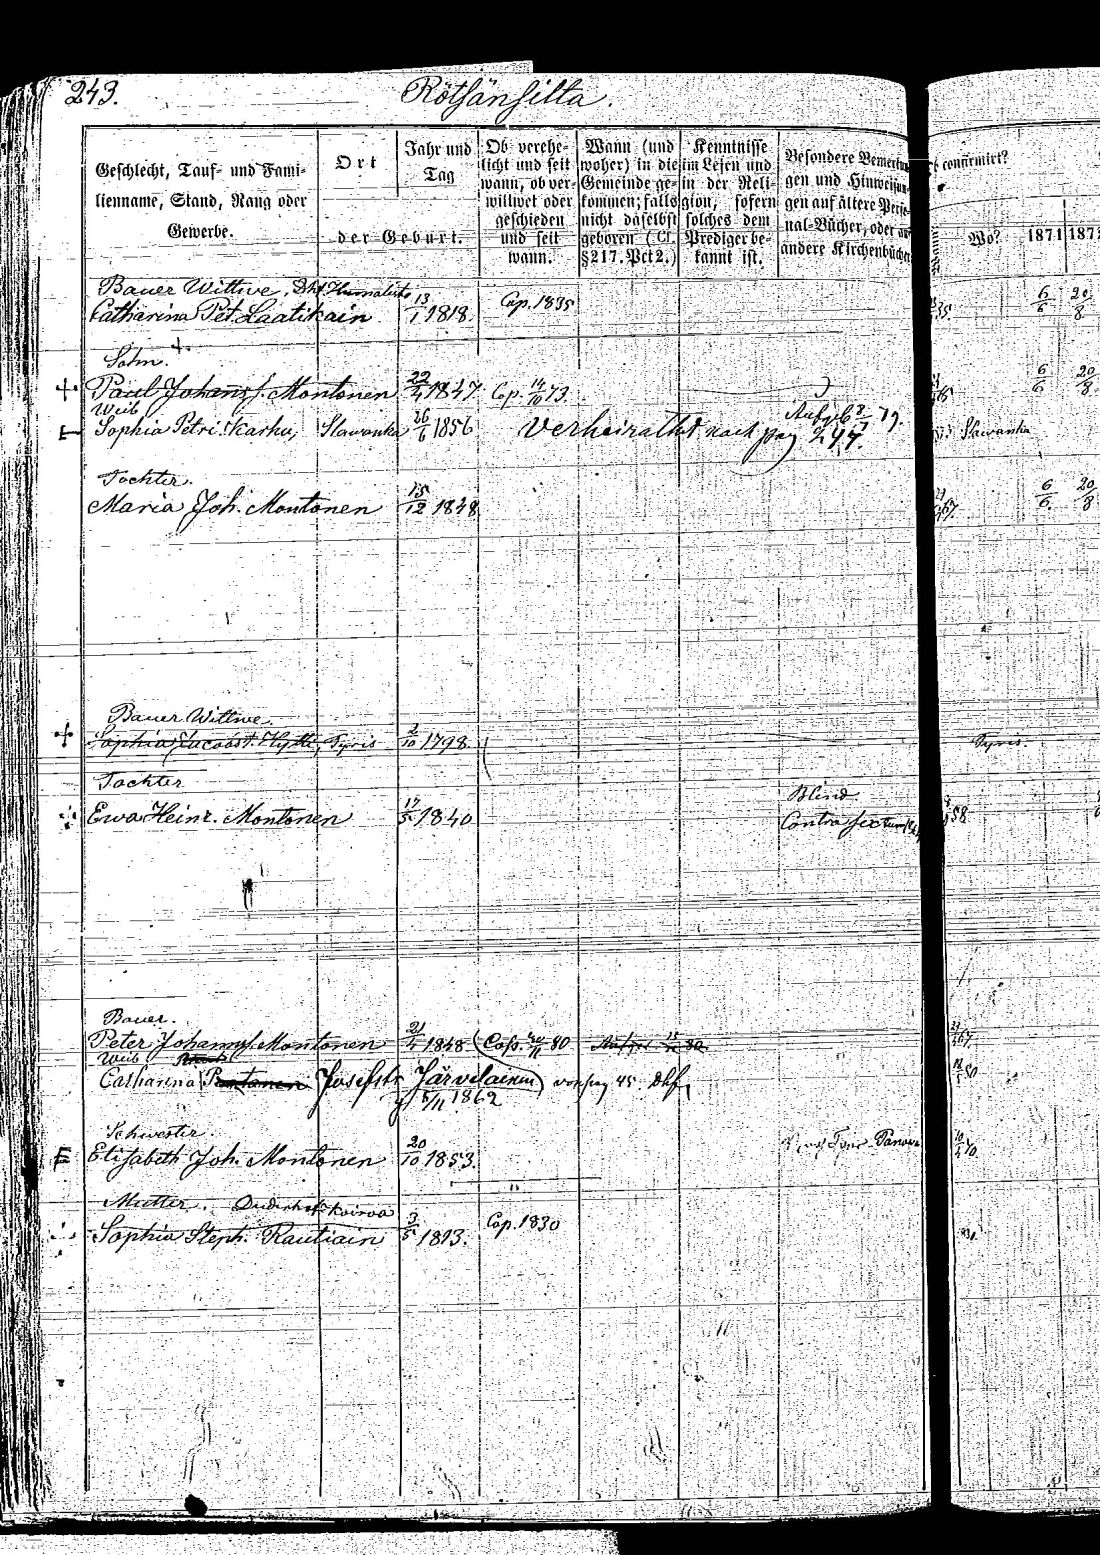 243.
Rötsänsilta.
Geschlecht, Tauf- und Fami-
lienname, Stand, Rang oder
Gewerbe.
Ort
Jahr und
Tag
der Geburt.
Ob verehe-
licht und seit
wann, ob ver-
wittwet oder
geschieden
und seit
wann.
Wann (und
woher) in die
Gemeinde ge-
kommen; falls
nicht daselbst
geboren (Cf.
§217. Pct 2.)
Kenntnisse
im Lesen und
in der Reli-
gion, sofern
solches dem
Prediger be-
kannt ist.
Besondere Bemerkun
gen und Hinweisun
gen auf ältere Perso
nal-Bücher, oder
andere Kirchenbücher
confirmirt?
Wo? 1871 1872
Bauer Wittwe,
Catharina Pet. Laatikain 13/1 1818. Cop. 1835 6/6 20/8
Sohn.
Paul Johannsf. Montonen 22/4 1847 Cop. 14/10 73. 6/6 20/8
Weib
Sophia Petri. Karhu, Slawanka 26/6 1856 Verheirathet nach pag 247. Slawanka
Tochter.
Maria Joh. Montonen 15/12 1848 67. 6/6. 20/8
Bauer Wittwe.
Sophia Jacobst. Hytti, Tyris 2/10 1798. Tyris.
Tochter
Ewa Heinr. Montonen 17/5 1840 58
Blind
Contra
Bauer.
Peter Johannsf. Montonen 21/4 1848 80 67.
Weib
Catharina Josefstr Järvelainen von pag 45 80
5/11 1862
Schwester.
Elisabeth Joh. Montonen 20/10 1853. 70.
Mutter.
Sophia Steph. Rautiain 3/5 1813. Cop. 1830